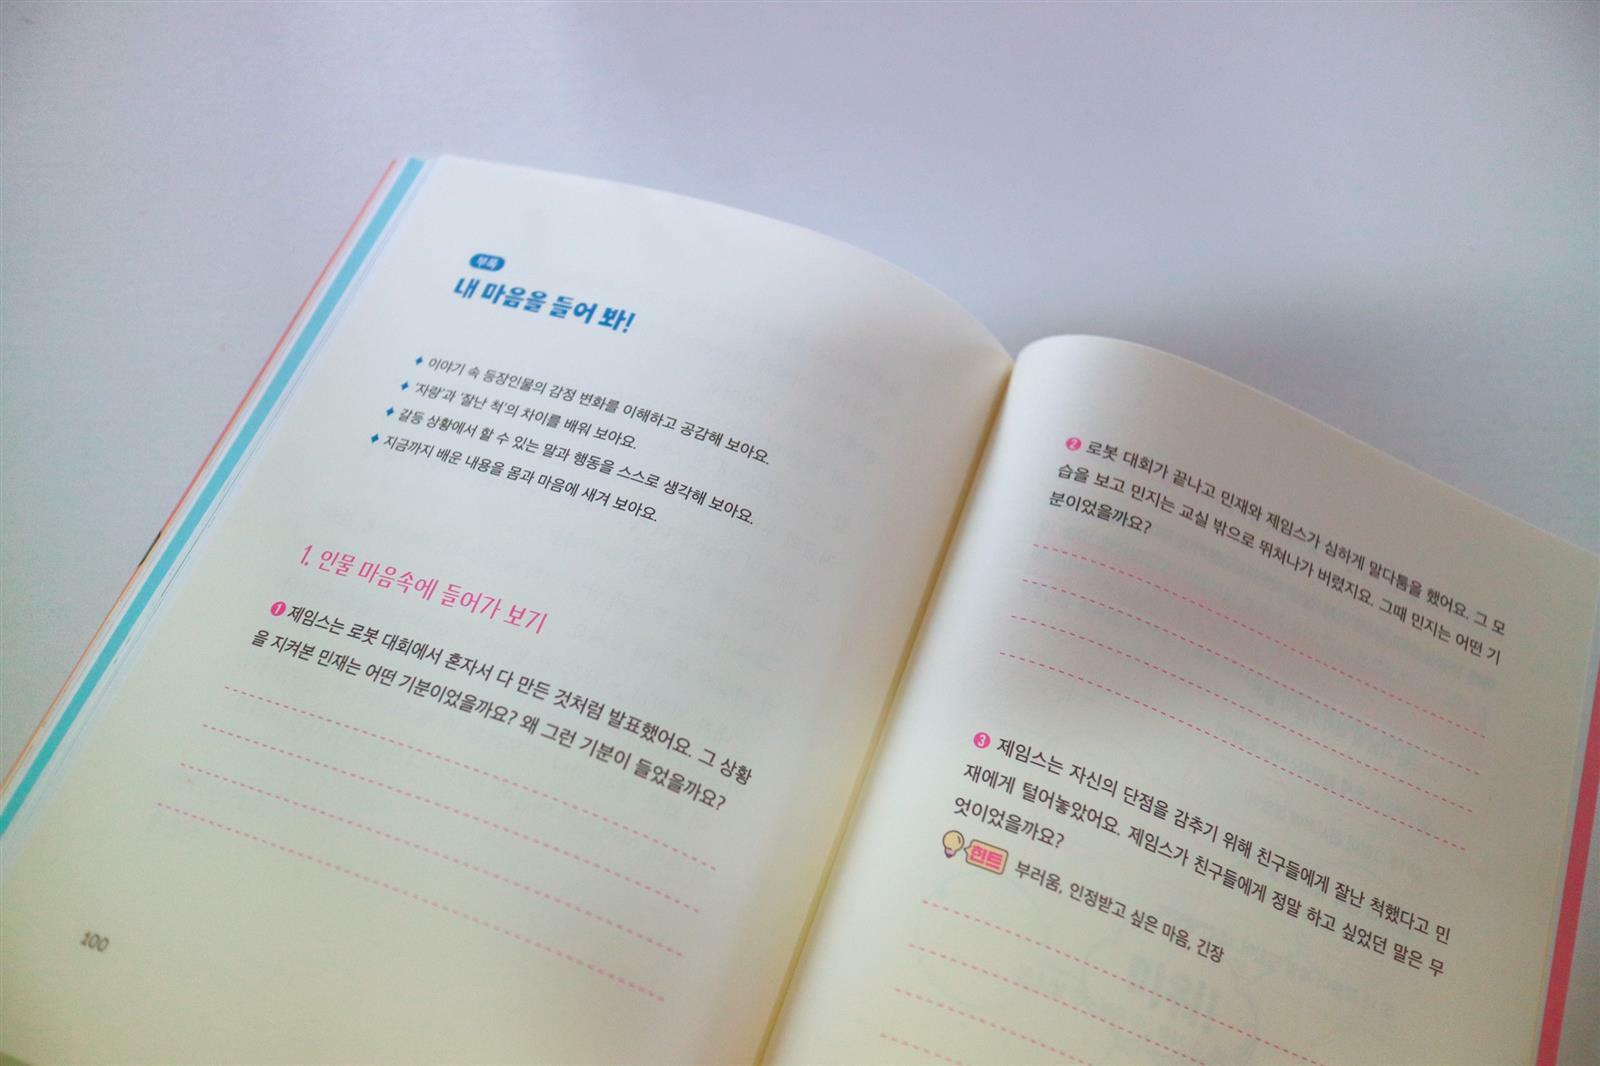 부록
내 마음을 들어 봐!
이야기 속 등장인물의 감정 변화를 이해하고 공감해 보아요.
'자랑'과 '잘난 척'의 차이를 배워 보아요.
갈등 상황에서 할 수 있는 말과 행동을 스스로 생각해 보아요.
지금까지 배운 내용을 몸과 마음에 새겨 보아요.
1. 인물 마음속에 들어가 보기
1 제임스는 로봇 대회에서 혼자서 다 만든 것처럼 발표했어요. 그 상황
을 지켜본 민재는 어떤 기분이었을까요? 왜 그런 기분이 들었을까요?
100
2 로봇 대회가 끝나고 민재와 제임스가 심하게 말다툼을 했어요. 그 모
습을 보고 민지는 교실 밖으로 뛰쳐나가 버렸지요. 그때 민지는 어떤 기
분이었을까요?
3 제임스는 자신의 단점을 감추기 위해 친구들에게 잘난 척했다고 민
재에게 털어놓았어요. 제임스가 친구들에게 정말 하고 싶었던 말은 무
엇이었을까요?
힌트 부러움, 인정받고 싶은 마음, 긴장